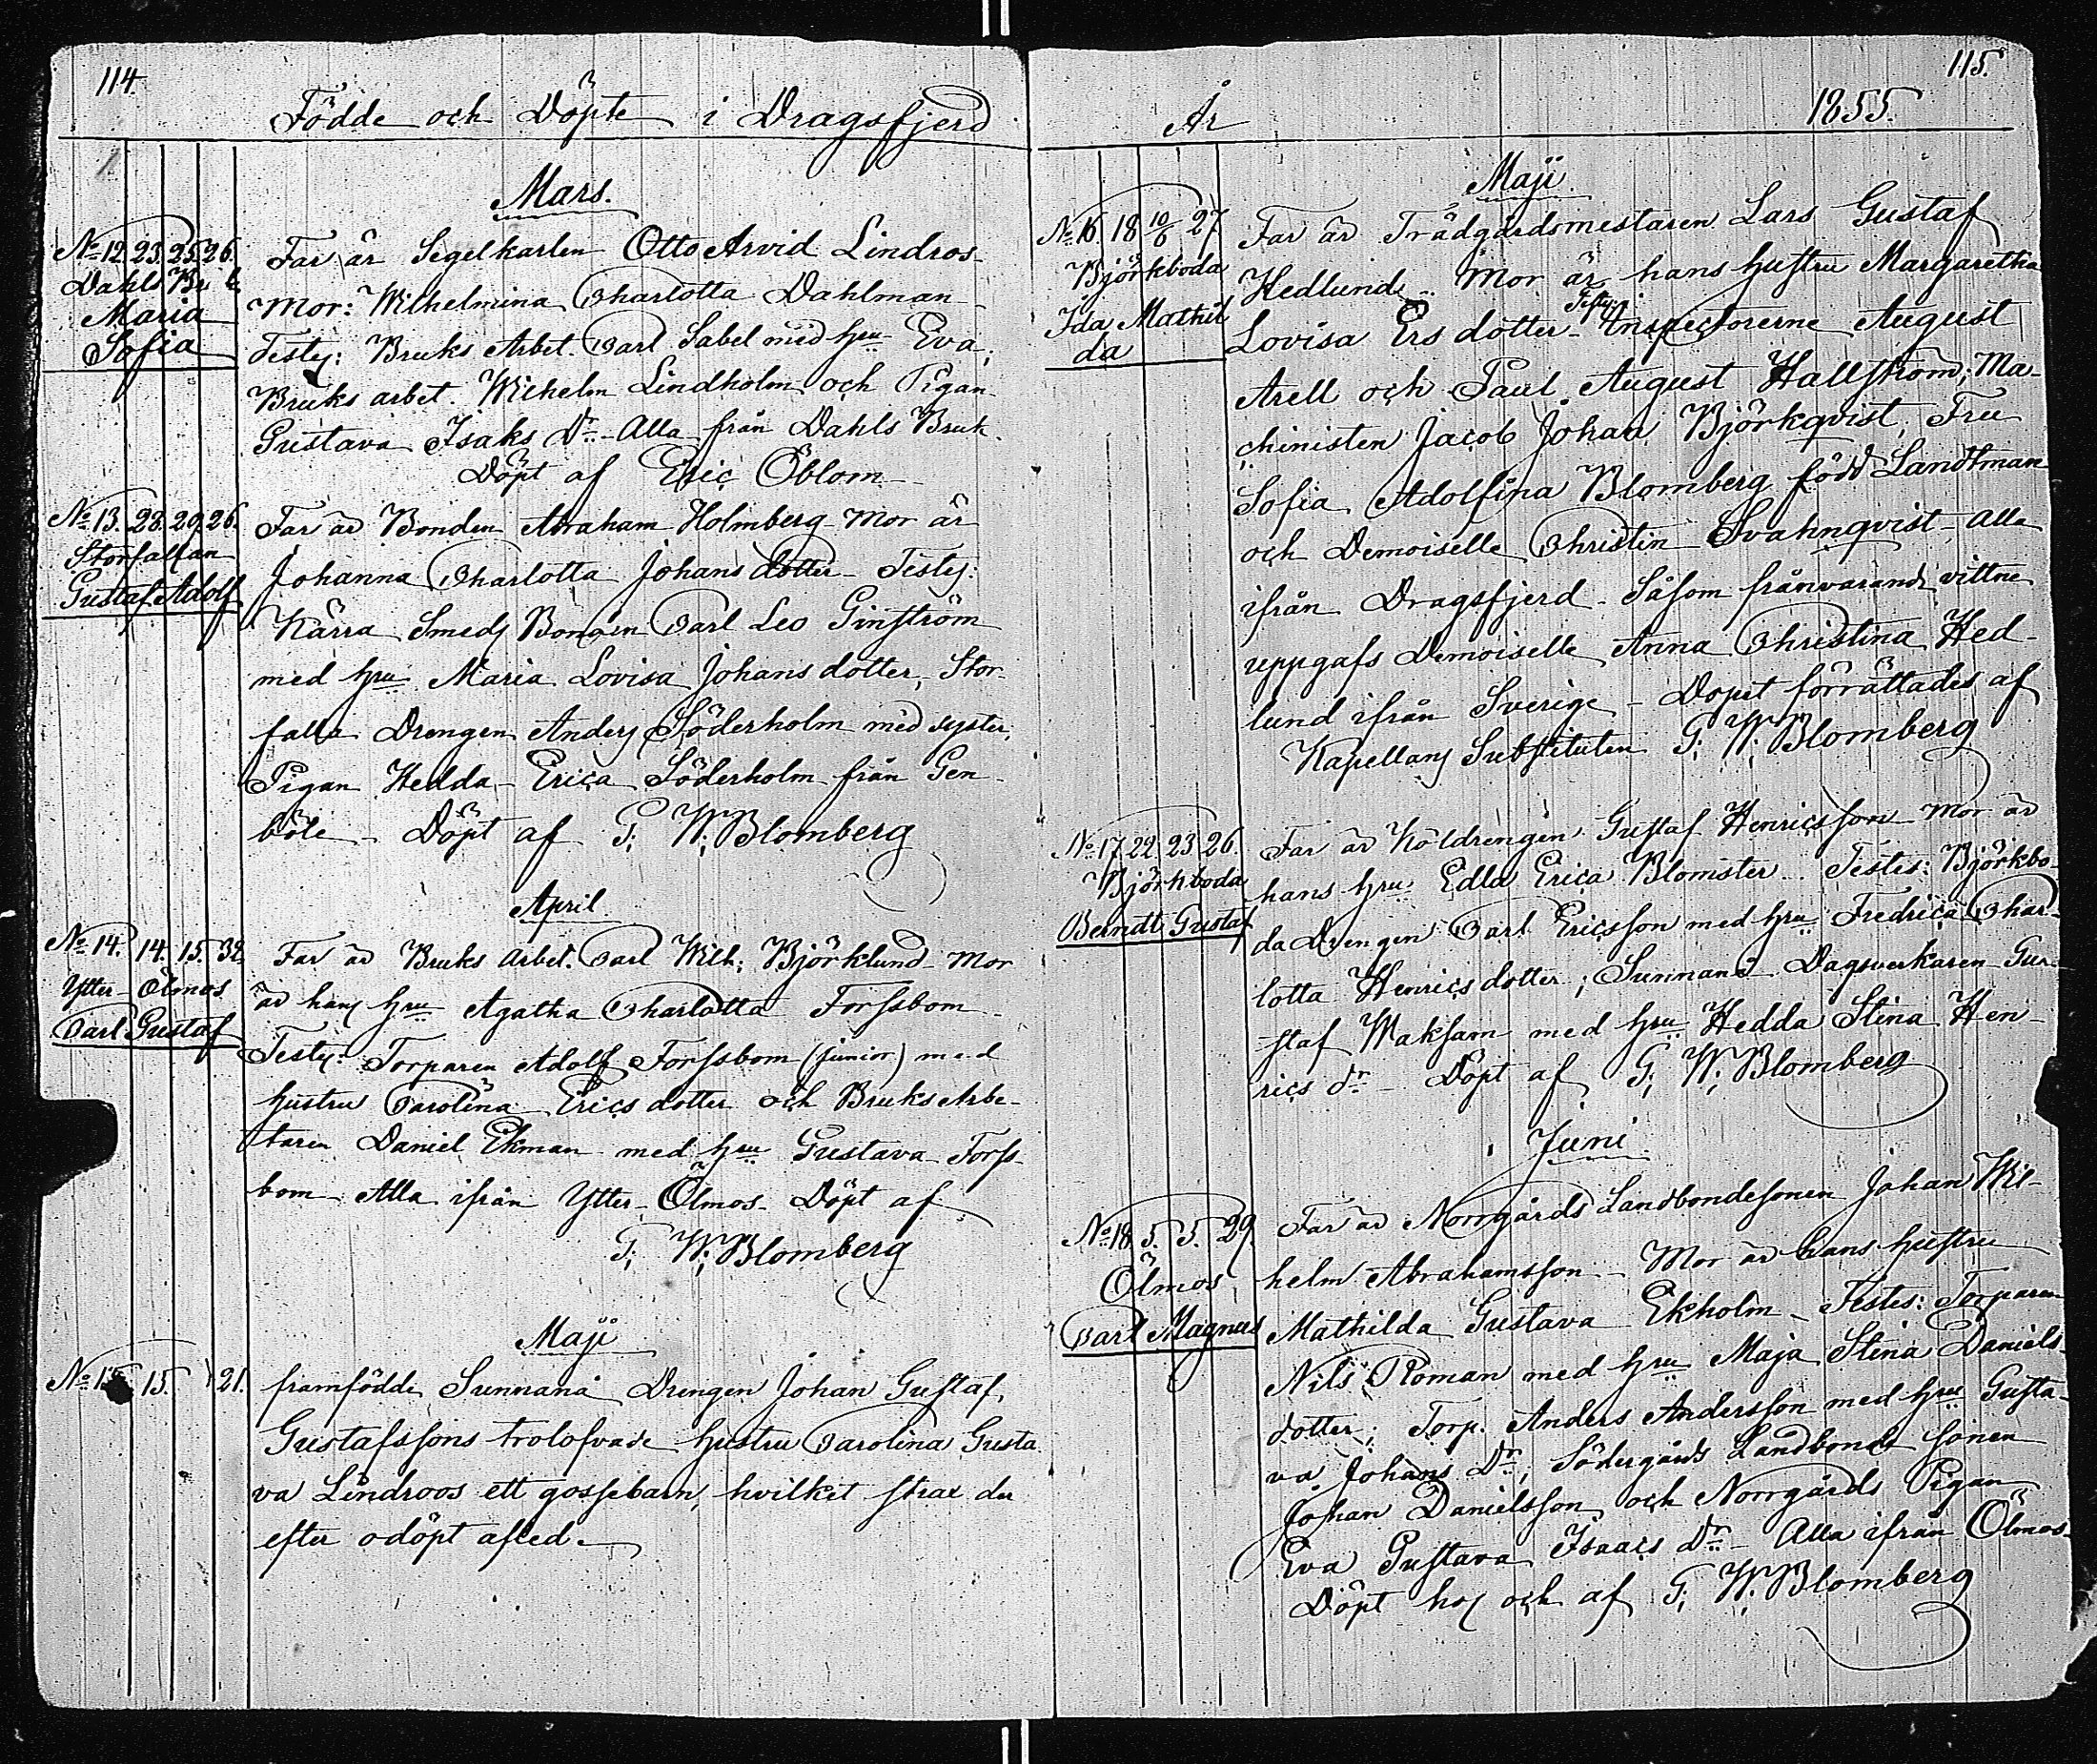 114.
Födde och Döpte i Dragsfjerd
Mars.
No 12. 23. 25. 26.
Dahls Bruk
Maria
Sofia
Far är Segelkarlen Otto Arvid Lindros
Mor: Wilhelmina Charlotta Dahlman
Testes: Bruks Arbet. Carl Sabel med hru Eva;
Bruks arbet. Wilhelm Lindholm och Pigan
Gustava Isaks Dr. Alla från Dahls Bruk.
Döpt af Eric Öblom
No 13. 28. 29. 26.
Storfallan
Gustaf Adolf
Far är Bonden Abraham Holmberg Mor är
Johanna Charlotta Johans dotter Testes:
Kärra Smeds Bonden Carl Leo Ginström
med hru Maria Lovisa Johans dotter, Stor-
falla Drengen Anders Söderholm med syster,
Pigan Hedda Erica Söderholm från Gen-
böle Döpt af G. W. Blomberg
April
No 14. 14. 15. 32.
Ytter Ölmos
Carl Gustaf
Far är Bruks Arbet. Carl Wilh; Björklund Mor
är hans hru Agatha Charlotta Forssbom
Testes: Torparen Adolf Forssbom (junior) med
hustru Carolina Erics dotter och Bruks Arbe-
taren Daniel Ekman med hru Gustava Forss-
bom Alla ifrån Ytter Ölmos Döpt af
G. W. Blomberg
Maji
No 15 15. 21.
framfödde Sunnanå Drengen Johan Gustaf
Gustafssons trolofvade hustru Carolina Gusta
va Lindroos ett gossebarn, hvilket strax der
efter odöpt afled.
115.
År 1855.
Maji
No 16. 18 10/6 27
Björkboda
Ida Mathil
da
Far är Trädgårdsmestaren Lars Gustaf
Hedlund Mor är hans hustru Margaretha
Lovisa Ers dotter Testes: Inspectorerne August
Arell och Paul August Hallström, Ma-
chinisten Jacob Johan Björkqvist, Fru
Sofia Adolfina Blomberg född Landtman
och Demoiselle Christin Svahnqvist Alla
ifrån Dragsfjerd Såsom frånvarande vittne
uppgafs Demoiselle Anna Christina Hed-
lund ifrån Sverige Dopet förrättades af
Kapellans Substituten G. W. Blomberg
No 17. 22. 23. 26.
Björkboda
Berndt Gustaf
Far är Koldrengen Gustaf Henricsson Mor är
hans hru Edla Erica Blomster Testes: Björkbo-
da Drengen Carl Ericsson med hru Fredrica Char-
lotta Henrics dotter; Sunnanå Dagsverkaren Gu-
staf Waksam med hru Hedda Stina Hen-
rics dr. Döpt af G. W. Blomberg
Juni
No 18. 5. 5. 29.
Ölmos
Carl Magnus
Far är Norrgårds Landbondesonen Johan Wil-
helm Abrahamsson Mor är hans hustru
Mathilda Gustava Ekholm Testes: Torparen
Nils Roman med hru Maja Stina Daniels
dotter; Torp. Anders Andersson med hru Gusta-
va Johans Dr; Södergårds Landbonde sonen
Johan Danielsson och Norrgårds Pigan
Eva Gustava Isaacs dr. Alla ifrån Ölmos
Döpt hos och af G. W. Blomberg